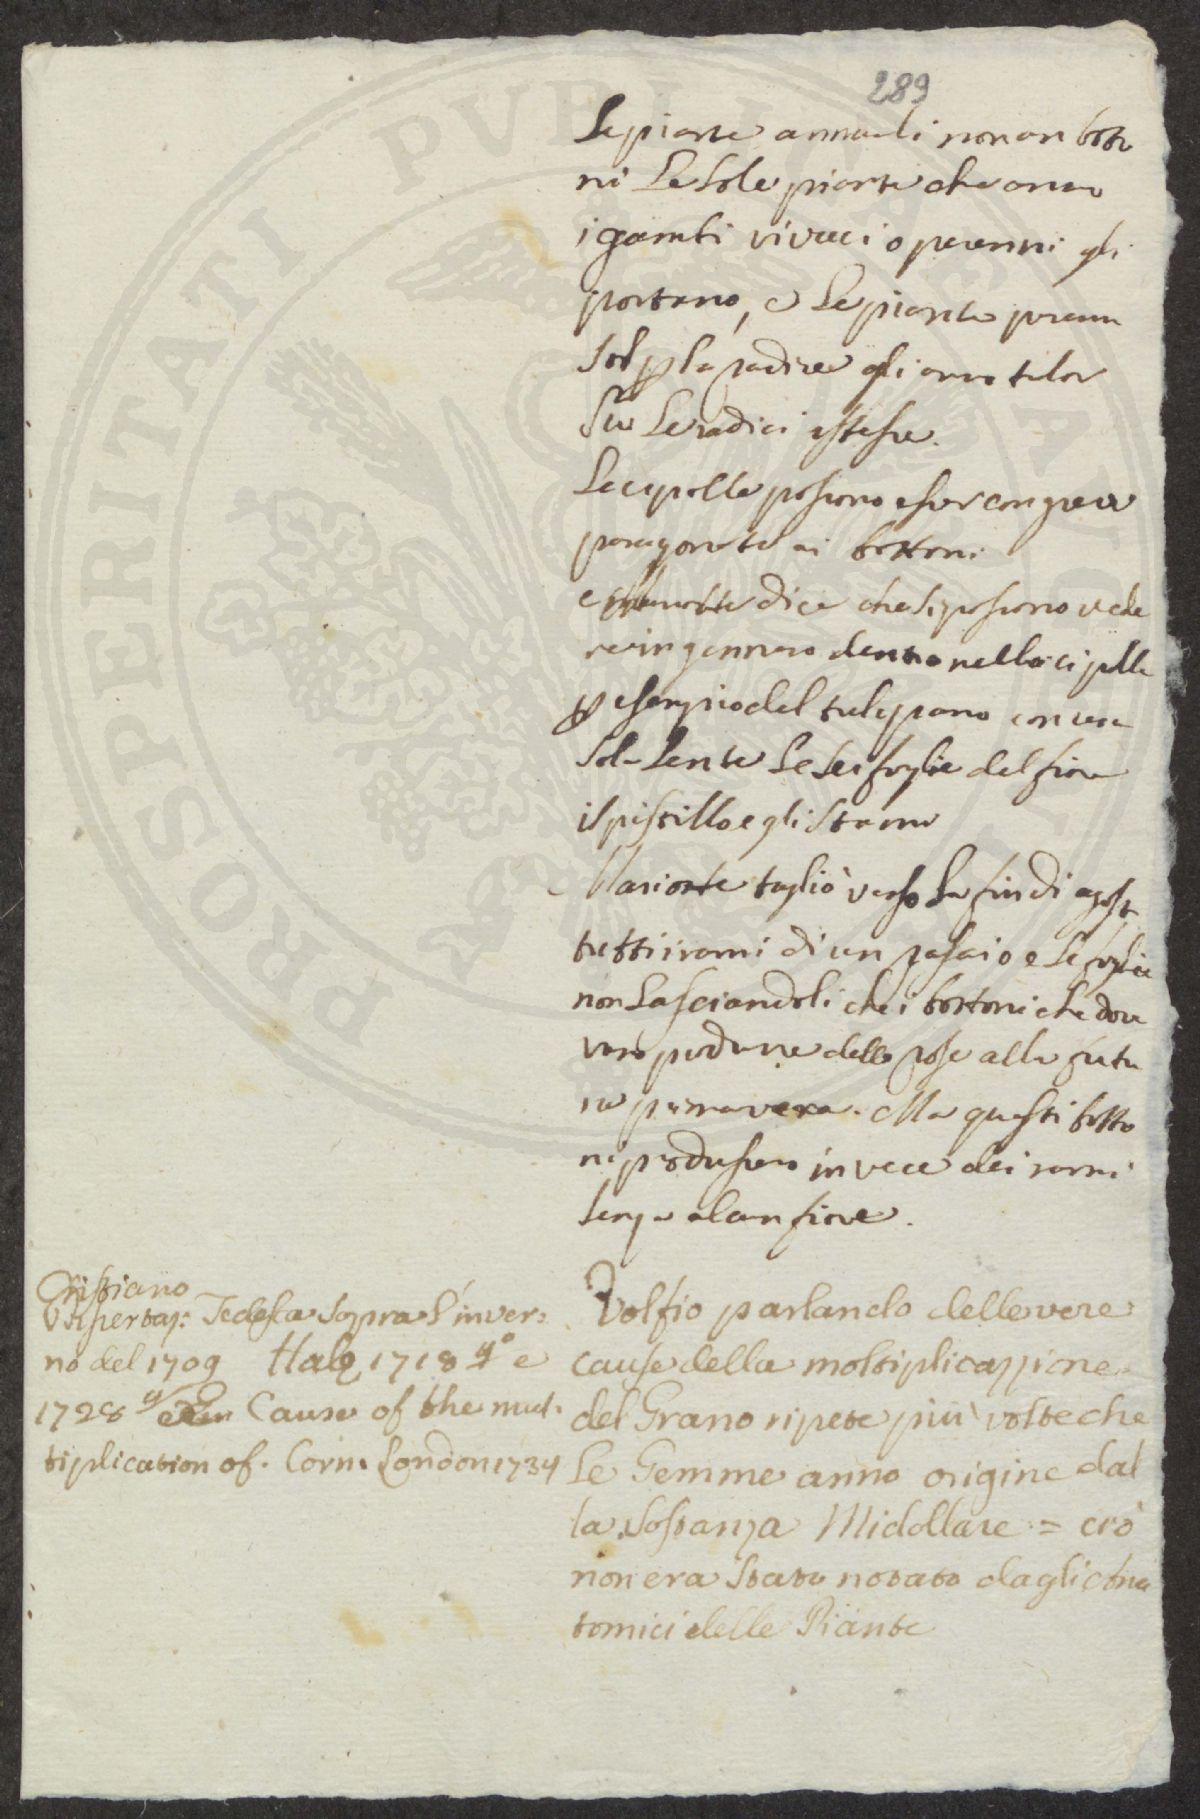 289
Le piante annuali non an botto
ni Le Sole piante che anno
i gambi vivaci o perenni gli
portano, e Le piante perenni
Sol p la radice gli anno talor
Su Le radici istesse.
Le cipolle possono esser
paragonate ai bottoni
Mariotte dice che si possono vede
re in gennaro dentro nelle cipolle
p esempio del tulipano con una
Sola Lente Le Sei foglie del fiore
il pistillo e gli Stami
Mariotte tagliò verso La fin di agosto
tutti i rami di un rosaio e Le foglie
non Lasciandoli che i bottoni che dove
vano produrre delle rose alla futu
ra primavera. Ma questi botto
ni produssero in vece dei rami
Senza alcun fiore.
Volfio parlando delle vere
cause della moltiplicazzione
del Grano ripete più volte che
Le Gemme anno origine dal
la Sostanza Midollare = ciò
non era Stato notato dagli Ana
tomici delle Piante
Cristiano
Tedesca Sopra L'inver:
no del 1709 Hale 1718 4° e
1728 Cause of the mul:
tiplication of. Corn. London 1734
PROSPERITATI PVBLICAE